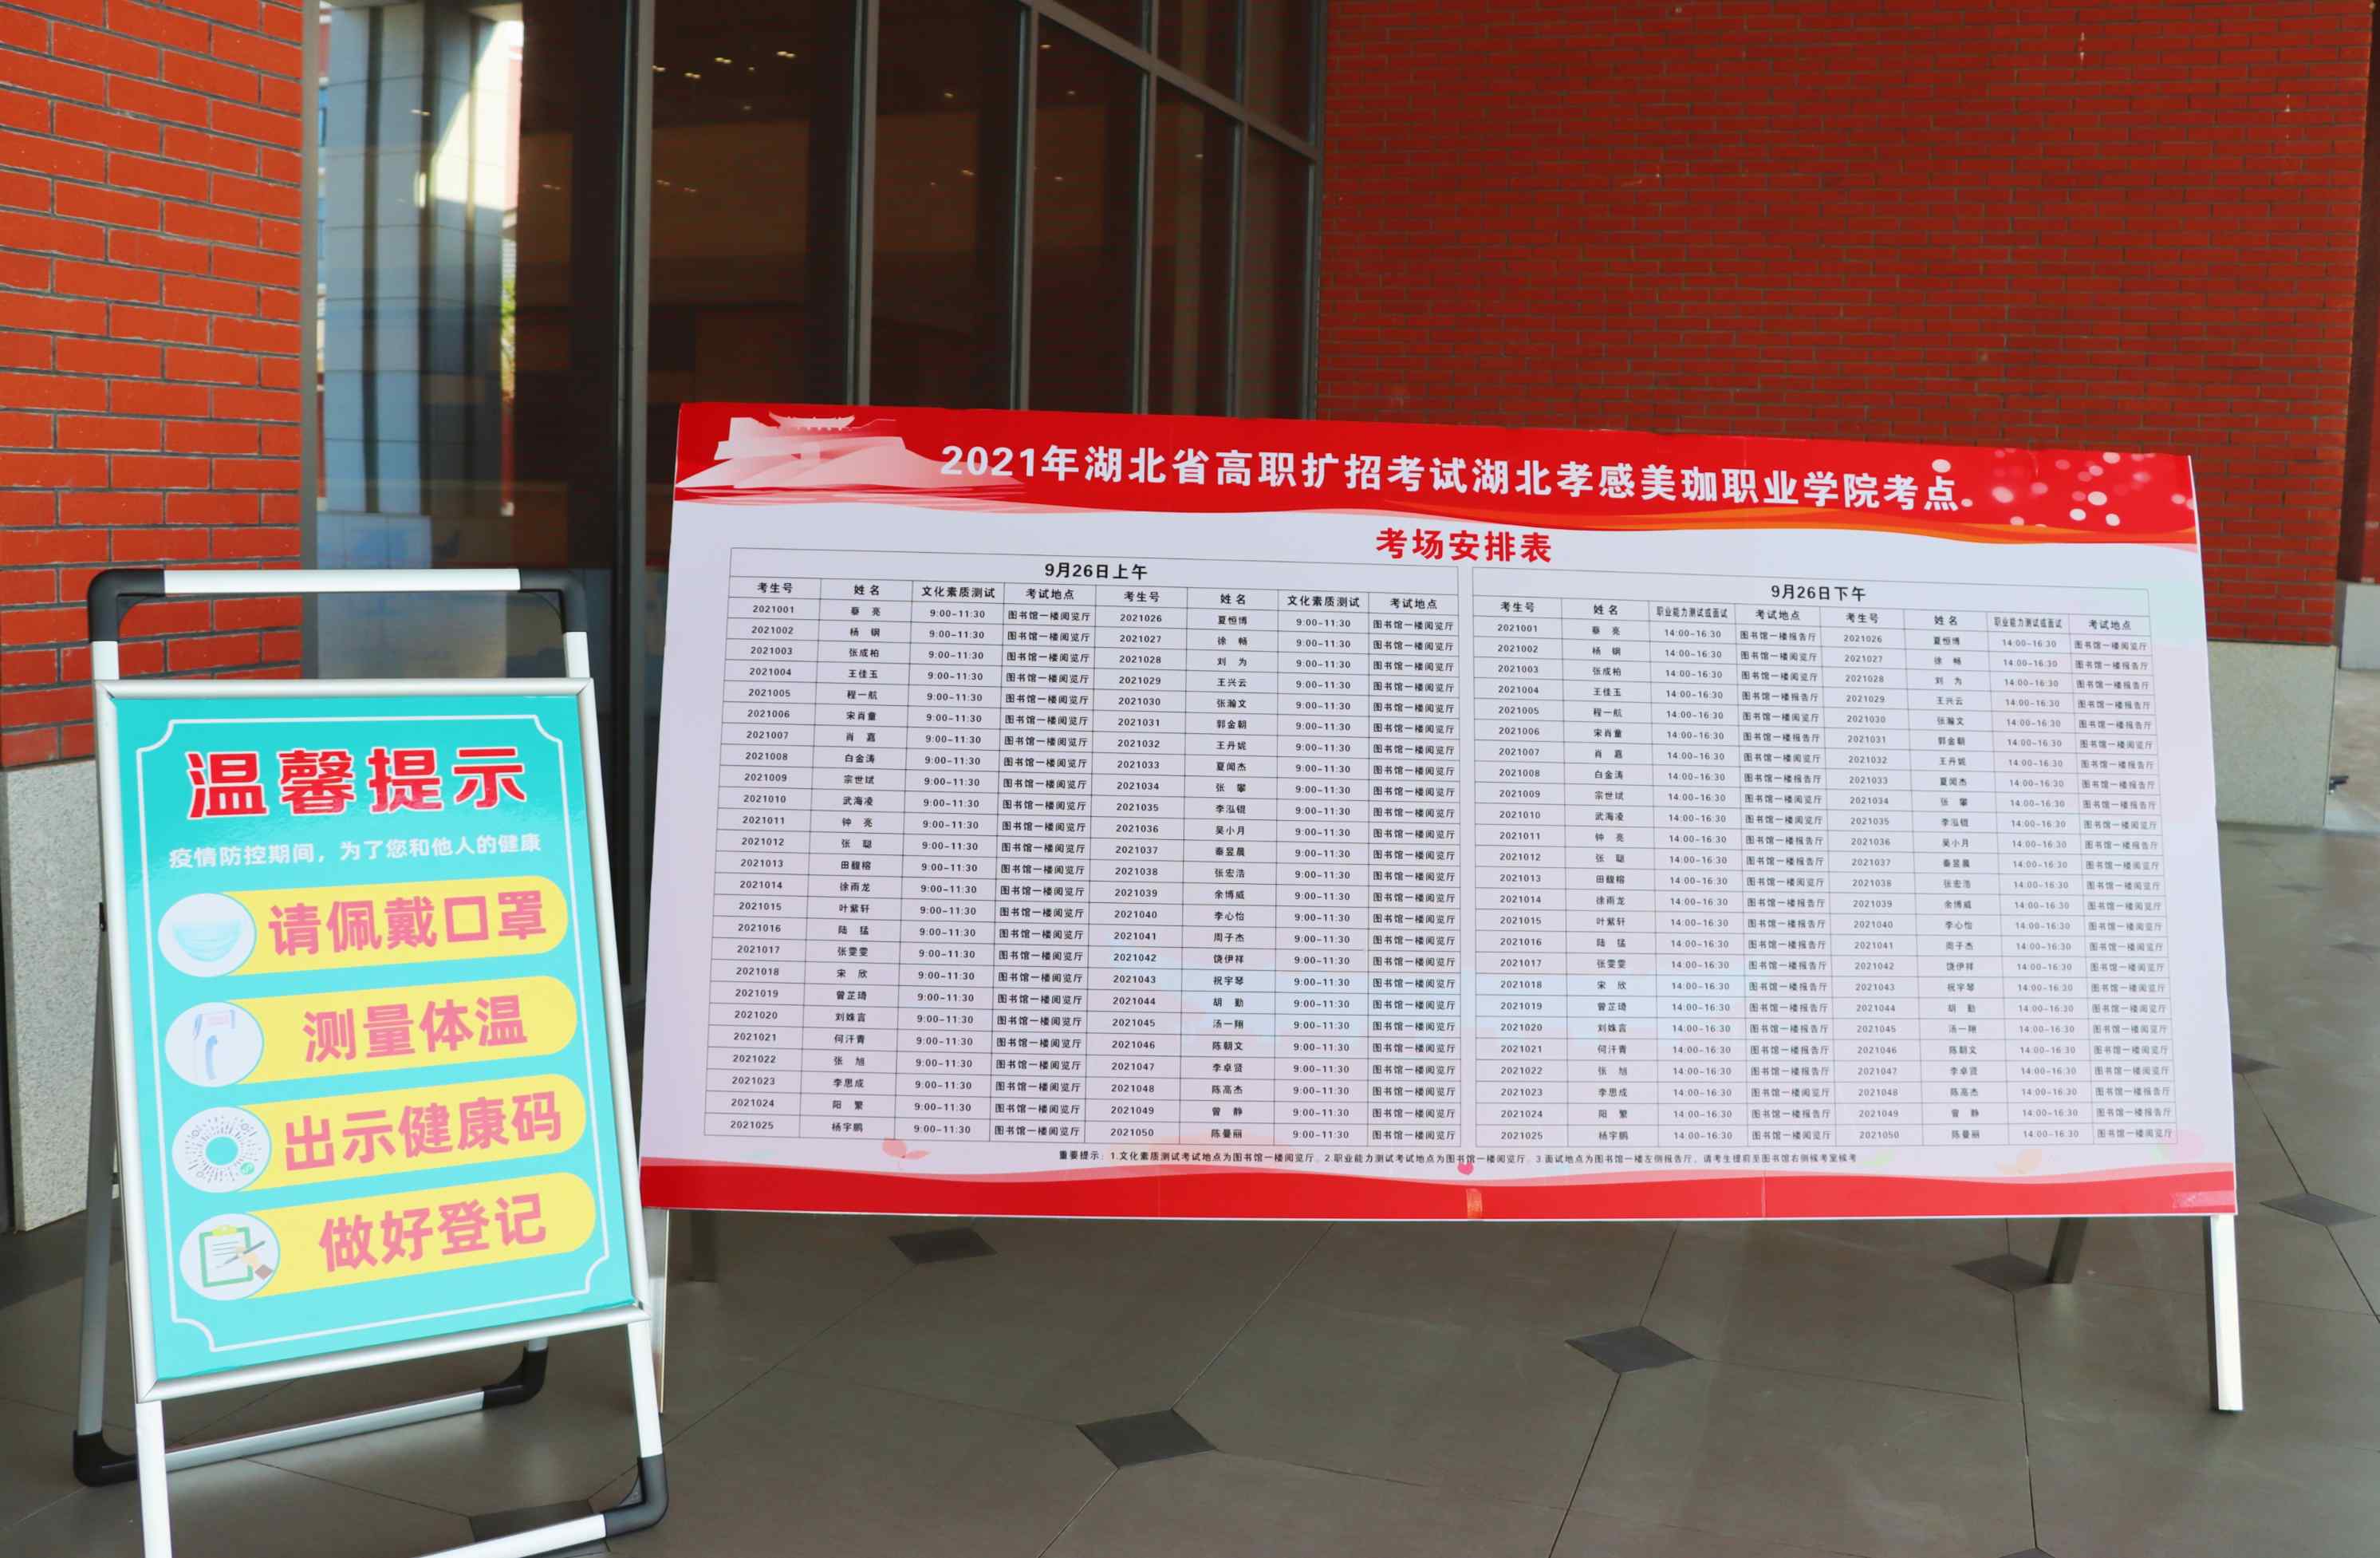 温馨提示
疫情防控期间，为了您和他人的健康
请佩戴口罩
测量体温
出示健康码
做好登记
2021年湖北省高职扩招考试湖北孝感美珈职业学院考点
考场安排表
9月26日上午
考生号 姓名 文化素质测试 考试地点 考生号 姓名 文化素质测试 考试地点
2021001 蔡亮 9:00-11:30 图书馆一楼阅览厅 2021026 夏恒博 9:00-11:30 图书馆一楼阅览厅
2021002 杨钢 9:00-11:30 图书馆一楼阅览厅 2021027 徐畅 9:00-11:30 图书馆一楼阅览厅
2021003 张成柏 9:00-11:30 图书馆一楼阅览厅 2021028 刘为 9:00-11:30 图书馆一楼阅览厅
2021004 王佳玉 9:00-11:30 图书馆一楼阅览厅 2021029 王兴云 9:00-11:30 图书馆一楼阅览厅
2021005 程一航 9:00-11:30 图书馆一楼阅览厅 2021030 张瀚文 9:00-11:30 图书馆一楼阅览厅
2021006 宋肖童 9:00-11:30 图书馆一楼阅览厅 2021031 郭金朝 9:00-11:30 图书馆一楼阅览厅
2021007 肖嘉 9:00-11:30 图书馆一楼阅览厅 2021032 王丹妮 9:00-11:30 图书馆一楼阅览厅
2021008 白金涛 9:00-11:30 图书馆一楼阅览厅 2021033 夏闻杰 9:00-11:30 图书馆一楼阅览厅
2021009 宗世斌 9:00-11:30 图书馆一楼阅览厅 2021034 张 9:00-11:30 图书馆一楼阅览厅
2021010 武海凌 9:00-11:30 图书馆一楼阅览厅 2021035 李泓锟 9:00-11:30 图书馆一楼阅览厅
2021011 钟亮 9:00-11:30 图书馆一楼阅览厅 2021036 吴小月 9:00-11:30 图书馆一楼阅览厅
2021012 张聪 9:00-11:30 图书馆一楼阅览厅 2021037 秦昱晨 9:00-11:30 图书馆一楼阅览厅
2021013 田馥榕 9:00-11:30 图书馆一楼阅览厅 2021038 张宏浩 9:00-11:30 图书馆一楼阅览厅
2021014 徐雨龙 9:00-11:30 图书馆一楼阅览厅 2021039 余博威 9:00-11:30 图书馆一楼阅览厅
2021015 叶紫轩 9:00-11:30 图书馆一楼阅览厅 2021040 李心怡 9:00-11:30 图书馆一楼阅览厅
2021016 陆猛 9:00-11:30 图书馆一楼阅览厅 2021041 周子杰 9:00-11:30 图书馆一楼阅览厅
2021017 张雯雯 9:00-11:30 图书馆一楼阅览厅 2021042 饶伊祥 9:00-11:30 图书馆一楼阅览厅
2021018 宋欣 9:00-11:30 图书馆一楼阅览厅 2021043 祝宇琴 9:00-11:30 图书馆一楼阅览厅
2021019 曾芷琦 9:00-11:30 图书馆一楼阅览厅 2021044 胡勤 9:00-11:30 图书馆一楼阅览厅
2021020 刘姝言 9:00-11:30 图书馆一楼阅览厅 2021045 汤一翔 9:00-11:30 图书馆一楼阅览厅
2021021 何汗青 9:00-11:30 图书馆一楼阅览厅 2021046 陈朝文 9:00-11:30 图书馆一楼阅览厅
2021022 张旭 9:00-11:30 图书馆一楼阅览厅 2021047 李卓贤 9:00-11:30 图书馆一楼阅览厅
2021023 李思成 9:00-11:30 图书馆一楼阅览厅 2021048 陈高杰 9:00-11:30 图书馆一楼阅览厅
2021024 阳繁 9:00-11:30 图书馆一楼阅览厅 2021049 曾静 9:00-11:30 图书馆一楼阅览厅
2021025 杨宇鹏 9:00-11:30 图书馆一楼阅览厅 2021050 陈曼丽 9:00-11:30 图书馆一楼阅览厅
9月26日下午
考生号 姓名 职业能力测试或面试 考试地点 考生号 姓名 职业能力测试或面试 考试地点
2021001 蔡亮 14:00-16:30 图书馆一楼报告厅 2021026 夏恒博 14:00-16:30 图书馆一楼阅览厅
2021002 杨钢 14:00-16:30 图书馆一楼阅览厅 2021027 徐畅 14:00-16:30 图书馆一楼报告厅
2021003 张成柏 14:00-16:30 图书馆一楼阅览厅 2021028 刘为 14:00-16:30 图书馆一楼报告厅
2021004 王佳玉 14:00-16:30 图书馆一楼报告厅 2021029 王兴云 14:00-16:30 图书馆一楼报告厅
2021005 程一航 14:00-16:30 图书馆一楼阅览厅 2021030 张瀚文 14:00-16:30 图书馆一楼报告厅
2021006 宋肖童 14:00-16:30 图书馆一楼报告厅 2021031 郭金朝 14:00-16:30 图书馆一楼阅览厅
2021007 肖嘉 14:00-16:30 图书馆一楼阅览厅 2021032 王丹妮 14:00-16:30 图书馆一楼报告厅
2021008 白金涛 14:00-16:30 图书馆一楼报告厅 2021033 夏闻杰 14:00-16:30 图书馆一楼报告厅
2021009 宗世斌 14:00-16:30 图书馆一楼阅览厅 2021034 张 14:00-16:30 图书馆一楼报告厅
2021010 武海凌 14:00-16:30 图书馆一楼阅览厅 2021035 李泓锟 14:00-16:30 图书馆一楼阅览厅
2021011 钟亮 14:00-16:30 图书馆一楼报告厅 2021036 吴小月 14:00-16:30 图书馆一楼报告厅
2021012 张聪 14:00-16:30 图书馆一楼报告厅 2021037 秦昱晨 14:00-16:30 图书馆一楼阅览厅
2021013 田馥榕 14:00-16:30 图书馆一楼阅览厅 2021038 张宏浩 14:00-16:30 图书馆一楼阅览厅
2021014 徐雨龙 14:00-16:30 图书馆一楼报告厅 2021039 余博威 14:00-16:30 图书馆一楼阅览厅
2021015 叶紫轩 14:00-16:30 图书馆一楼报告厅 2021040 李心怡 14:00-16:30 图书馆一楼阅览厅
2021016 陆猛 14:00-16:30 图书馆一楼报告厅 2021041 周子杰 14:00-16:30 图书馆一楼阅览厅
2021017 张雯雯 14:00-16:30 图书馆一楼报告厅 2021042 饶伊祥 14:00-16:30 图书馆一楼阅览厅
2021018 宋欣 14:00-16:30 图书馆一楼报告厅 2021043 祝宇琴 14:00-16:30 图书馆一楼阅览厅
2021019 曾芷琦 14:00-16:30 图书馆一楼报告厅 2021044 胡勤 14:00-16:30 图书馆一楼阅览厅
2021020 刘姝言 14:00-16:30 图书馆一楼报告厅 2021045 汤一翔 14:00-16:30 图书馆一楼阅览厅
2021021 何汗青 14:00-16:30 图书馆一楼报告厅 2021046 陈朝文 14:00-16:30 图书馆一楼阅览厅
2021022 张旭 14:00-16:30 图书馆一楼报告厅 2021047 李卓贤 14:00-16:30 图书馆一楼阅览厅
2021023 李思成 14:00-16:30 图书馆一楼阅览厅 2021048 陈高杰 14:00-16:30 图书馆一楼报告厅
2021024 阳繁 14:00-16:30 图书馆一楼报告厅 2021049 曾静 14:00-16:30 图书馆一楼报告厅
2021025 杨宇鹏 14:00-16:30 图书馆一楼阅览厅 2021050 陈曼丽 14:00-16:30 图书馆一楼阅览厅
重要提示：1.文化素质测试考试地点为图书馆一楼阅览厅，2.职业能力测试考试地点为图书馆一楼阅览厅，3.面试地点为图书馆一楼左侧报告厅，请考生提前至图书馆右侧候考室候考